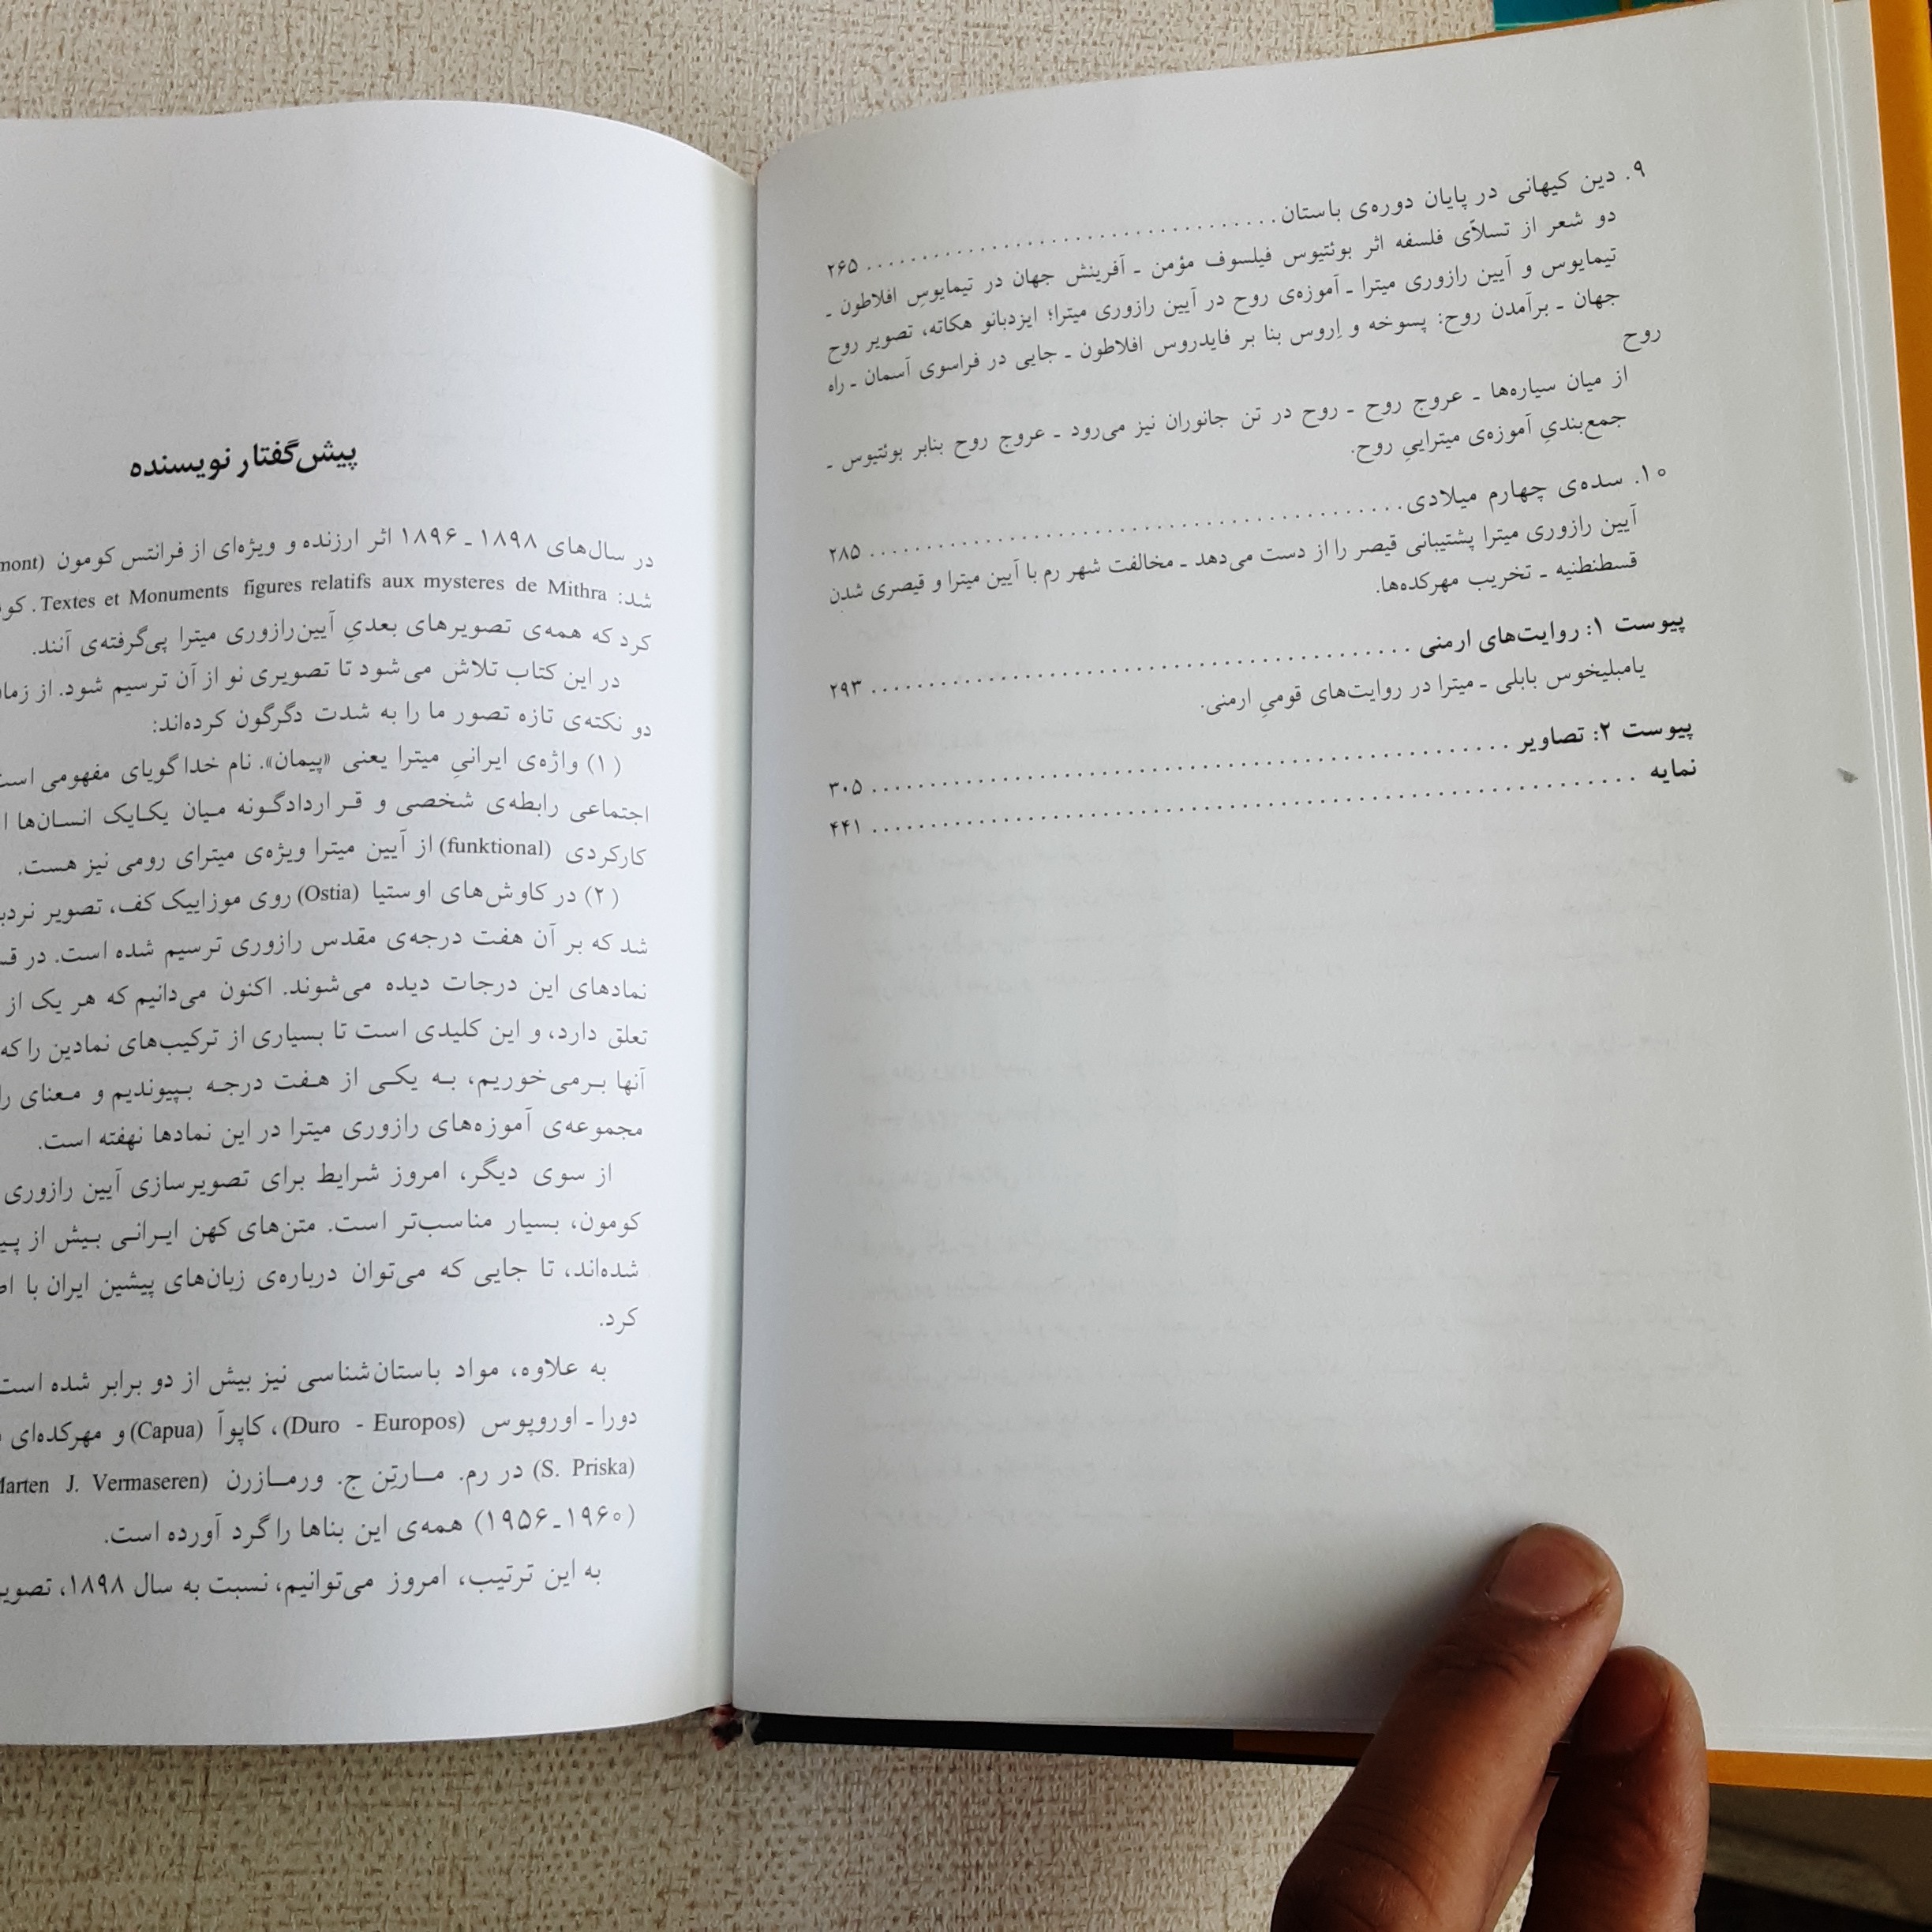 ۹. دین کیهانی در پایان دوره‌ی باستان ........................................ ۲۶۵
دو شعر از تسلاّی فلسفه اثر بوئتیوس فیلسوف مؤمن ـ آفرینش جهان در تیمایوسِ افلاطون ـ
تیمایوس و آیین رازوری میترا ـ آموزه‌ی روح در آیین رازوری میترا؛ ایزدبانو هکاته، تصویر روح
جهان ـ برآمدن روح: پسوخه و اِروس بنا بر فایدروس افلاطون ـ جایی در فراسوی آسمان ـ راه
روح
از میان سیاره‌ها ـ عروج روح ـ روح در تن جانوران نیز می‌رود ـ عروج روح بنابر بوئتیوس ـ
جمع‌بندیِ آموزه‌ی میتراییِ روح.
۱۰. سده‌ی چهارم میلادی ........................................ ۲۸۵
آیین رازوری میترا پشتیبانی قیصر را از دست می‌دهد ـ مخالفت شهر رم با آیین میترا و قیصری شدن
قسطنطنیه ـ تخریب مهرکده‌ها.
پیوست ۱: روایت‌های ارمنی ........................................ ۲۹۳
یامبلیخوس بابلی ـ میترا در روایت‌های قومیِ ارمنی.
پیوست ۲: تصاویر ........................................ ۳۰۵
نمایه ........................................ ۴۴۱
پیش‌گفتار نویسنده
در سال‌های ۱۸۹۸ ـ ۱۸۹۶ اثر ارزنده و ویژه‌ای از فرانتس کومون
شد: Textes et Monuments figures relatifs aux mysteres de Mithra.
کرد که همه‌ی تصویرهای بعدیِ آیین‌رازوری میترا پی‌گرفته‌ی آنند.
در این کتاب تلاش می‌شود تا تصویری نو از آن ترسیم شود. از
دو نکته‌ی تازه تصور ما را به شدت دگرگون کرده‌اند:
(۱) واژه‌ی ایرانیِ میترا یعنی «پیمان». نام خدا گویای مفهومی
اجتماعی رابطه‌ی شخصی و قراردادگونه میان یکایک انسان‌ها
کارکردی (funktional) از آیین میترا ویژه‌ی میترای رومی نیز هست.
(۲) در کاوش‌های اوستیا (Ostia) روی موزاییک کف، تصویر
شد که بر آن هفت درجه‌ی مقدس رازوری ترسیم شده است. در
نمادهای این درجات دیده می‌شوند. اکنون می‌دانیم که هر یک از
تعلق دارد، و این کلیدی است تا بسیاری از ترکیب‌های نمادین را که
آنها برمی‌خوریم، به یکی از هفت درجه بپیوندیم و معنای
مجموعه‌ی آموزه‌های رازوری میترا در این نمادها نهفته است.
از سوی دیگر، امروز شرایط برای تصویرسازی آیین رازوری
کومون، بسیار مناسب‌تر است. متن‌های کهن ایرانی بیش از
شده‌اند، تا جایی که می‌توان درباره‌ی زبان‌های پیشین ایران با
کرد.
به علاوه، مواد باستان‌شناسی نیز بیش از دو برابر شده است
دورا ـ اوروپوس (Duro - Europos)، کاپوآ (Capua) و مهرکده‌ای
(S. Priska) در رم. مارتِن ج. ورمازرن (Marten J. Vermaseren)
(۱۹۶۰ـ۱۹۵۶) همه‌ی این بناها را گرد آورده است.
به این ترتیب، امروز می‌توانیم، نسبت به سال ۱۸۹۸،